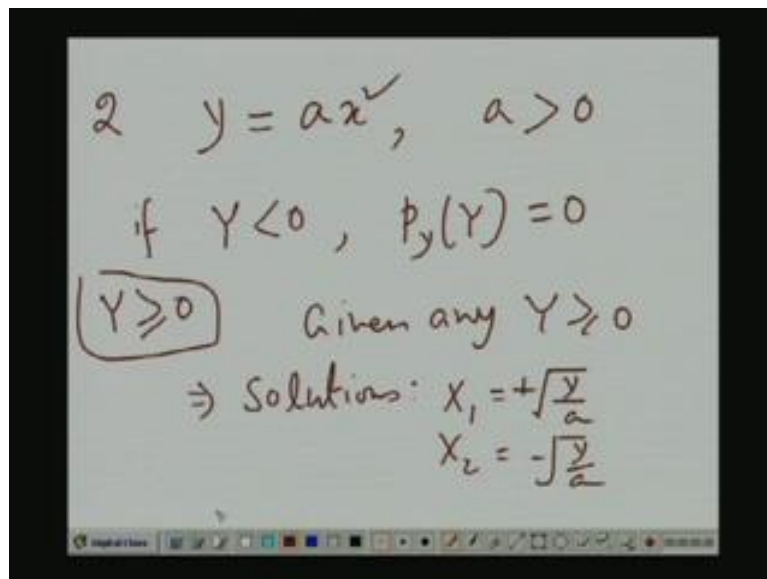 2 y = ax², a > 0
if Y < 0, p_y(Y) = 0
Y ⩾ 0 Given any Y ⩾ 0
⇒ Solutions: X₁ = +√(y/a)
X₂ = -√(y/a)